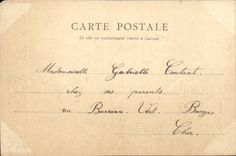 CARTE POSTALE
Ce côté est exclusivement réservé à l'adresse
Mademoiselle Gabrielle Contant.
chez ses parents.
au Berceau Vert. Bourges
Cher.